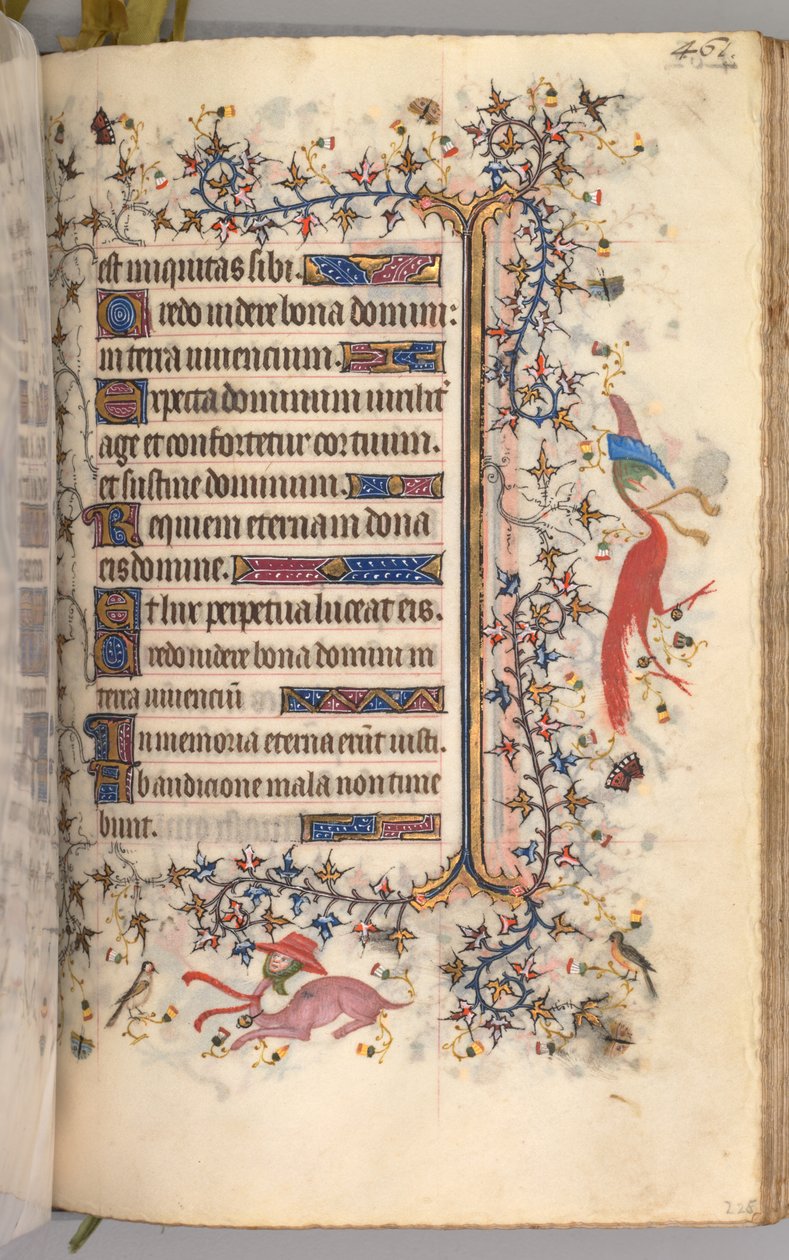 461.
est iniquitas sibi.
Credo uidere bona domini:
in terra uiuencium.
Expecta dominum uirilit᷑
age et confortetur cor tuum.
et sustine dominum.
Requiem eternam dona
eis domine.
Et lux perpetua luceat eis.
Credo uidere bona domini in
terra uiuenciū
In memoria eterna erūt iusti.
Ab audicione mala non time
bunt.